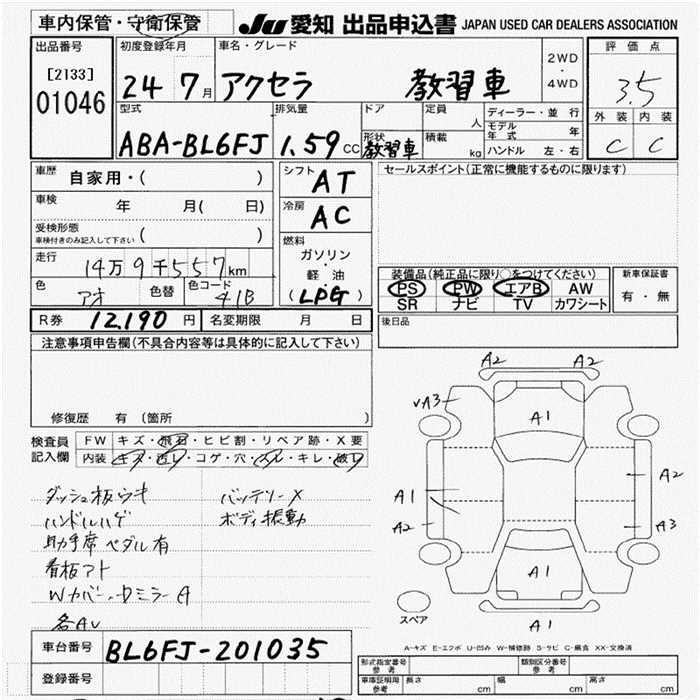 車内保管・守衛保管
JU 愛知 出品申込書 JAPAN USED CAR DEALERS ASSOCIATION
出品番号
[2133]
01046
初度登録年月
24 7月
車名・グレード
アクセラ 教習車
2WD
・
4WD
評価点
3.5
外装 内装
C C
型式
ABA-BL6FJ
排気量
1.59cc
ドア
形状
教習車
定員
人
積載
kg
ディーラー・並行
モデル年式 年
ハンドル 左・右
車歴 自家用・( )
車検 年 月( 日)
受検形態
車検付きのみ記入して下さい ( )
走行 14万9千557km
色 アオ 色替 色コード 41B
シフト AT
冷房 AC
燃料
ガソリン
・
軽油
(LPG)
セールスポイント(正常に機能するものに限ります)
装備品(純正品に限り○をつけてください)
PS PW エアB AW
SR ナビ TV カワシート
新車保証書
有・無
後日品
R券 12,190 円 名変期限 月 日
注意事項申告欄(不具合内容等は具体的に記入して下さい)
修復歴 有 (箇所 )
検査員記入欄
FW キズ・飛石・ヒビ割・リペア跡・X要
内装 キズ・汚レ・コゲ・穴・スレ・キレ・破レ
ダッシュ板ウキ バッテリーX
ハンドルハゲ ボディ振動
助手席ペダル有
看板アト
Wカバー・DミラーA
各AU
A2 A2
VA3
A1
A1 A2
A2 A3
A1
スペア
A1
A-キズ E-エクボ U-凹み W-補修跡 S-サビ C-腐食 XX-交換済
車台番号 BL6FJ-201035
登録番号
形式指定番号
参考
類別区分番号
参考
車庫証明用
参考
長さ cm 幅 cm 高さ cm